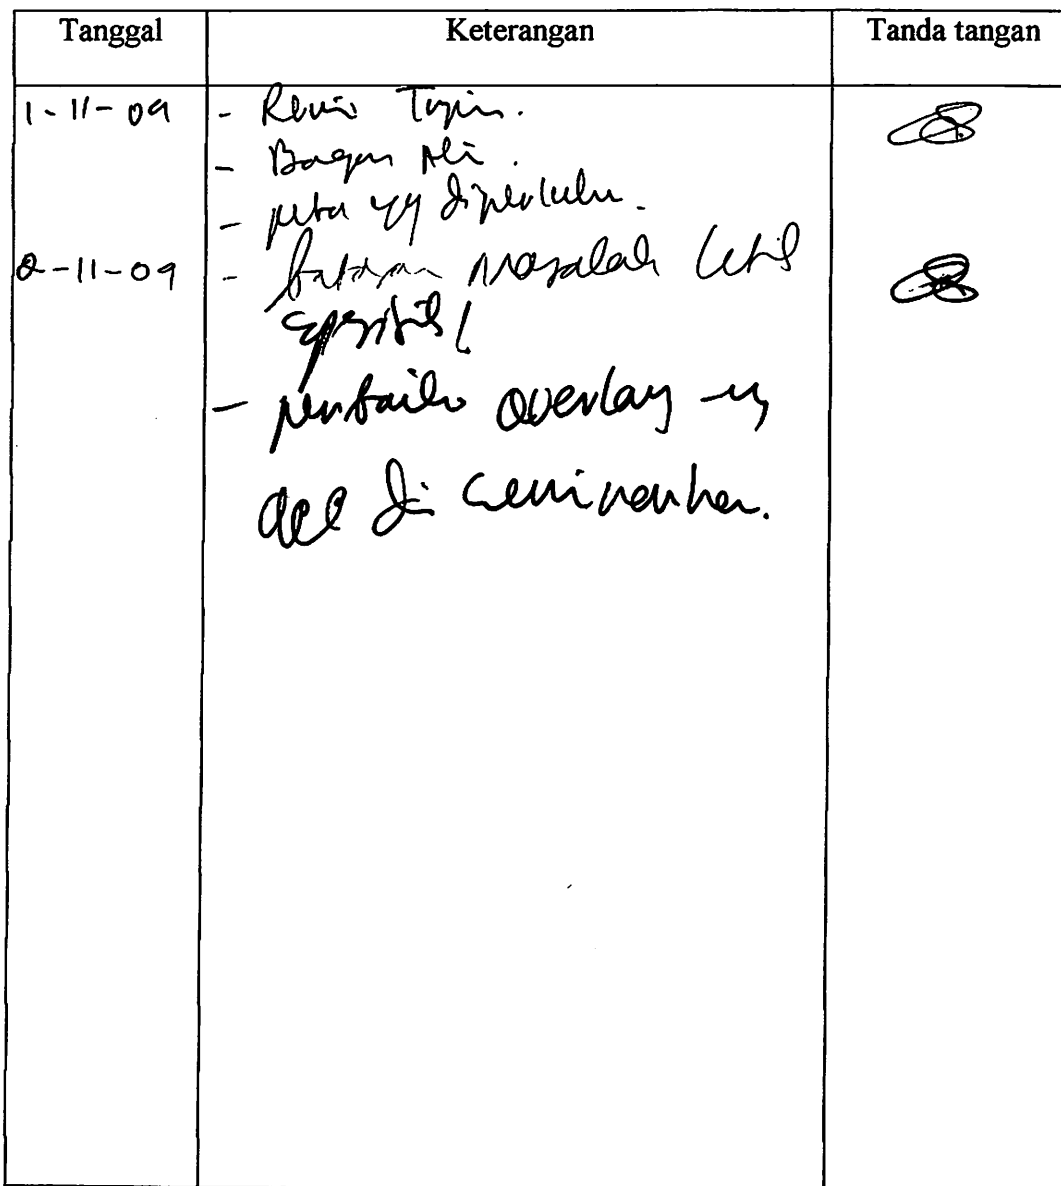 Tanggal Keterangan Tanda tangan
1-11-09 - Revisi Tujuan.
- Bagan Alir.
- peta yg diperlukan.
2-11-09 - batasan masalah lebih
spesifik!
- perbaiki overlay
acc di seminarkan.